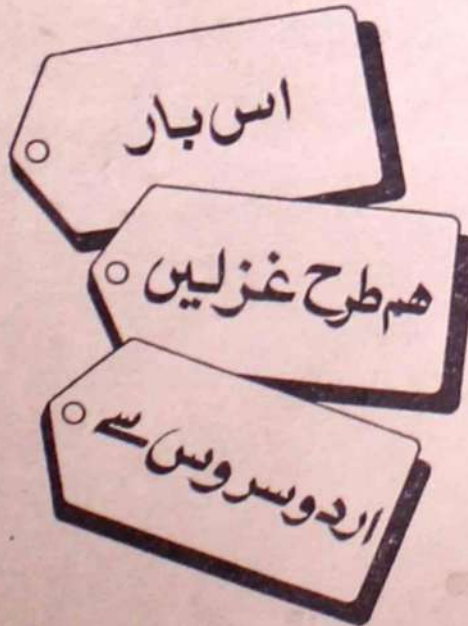 اس بار
ھم طرح غزلیں
اردو سروس سے